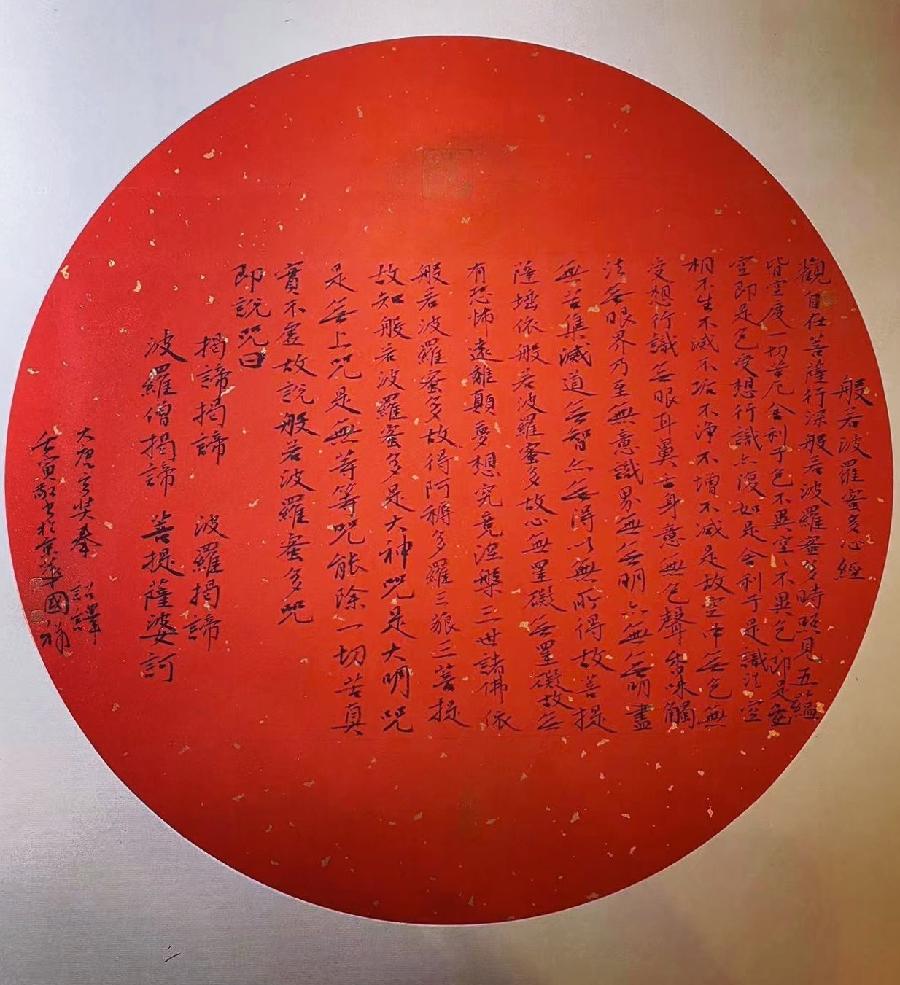 般若波羅蜜多心經
觀自在菩薩行深般若波羅蜜多時照見五蘊
皆空度一切苦厄舍利子色不異空不異色即是空
空即是色受想行識亦復如是舍利子是諸法空
相不生不滅不垢不淨不增不減是故空中無色無
受想行識無眼耳鼻舌身意無色聲香味觸
法無眼界乃至無意識界無無明亦無無明盡
無苦集滅道無智亦無得以無所得故菩提
薩埵依般若波羅蜜多故心無罣礙無罣礙故無
有恐怖遠離顛夢想究竟涅槃三世諸佛依
般若波羅蜜多故得阿耨多羅三藐三菩提
故知般若波羅蜜多是大神咒是大明咒
是無上咒是無等等咒能除一切苦真
實不虛故說般若波羅蜜多咒
即說咒曰
揭諦揭諦 波羅揭諦
波羅僧揭諦 菩提薩婆訶
大唐玄奘奉 詔譯
壬寅敬書於京華國祥